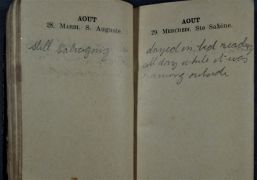 AOUT
28. MARDI. S. Auguste.
still salvaging
AOUT
29. MERCREDI. Ste Sabine.
stayed in bed reading
all day while it was
raining outside